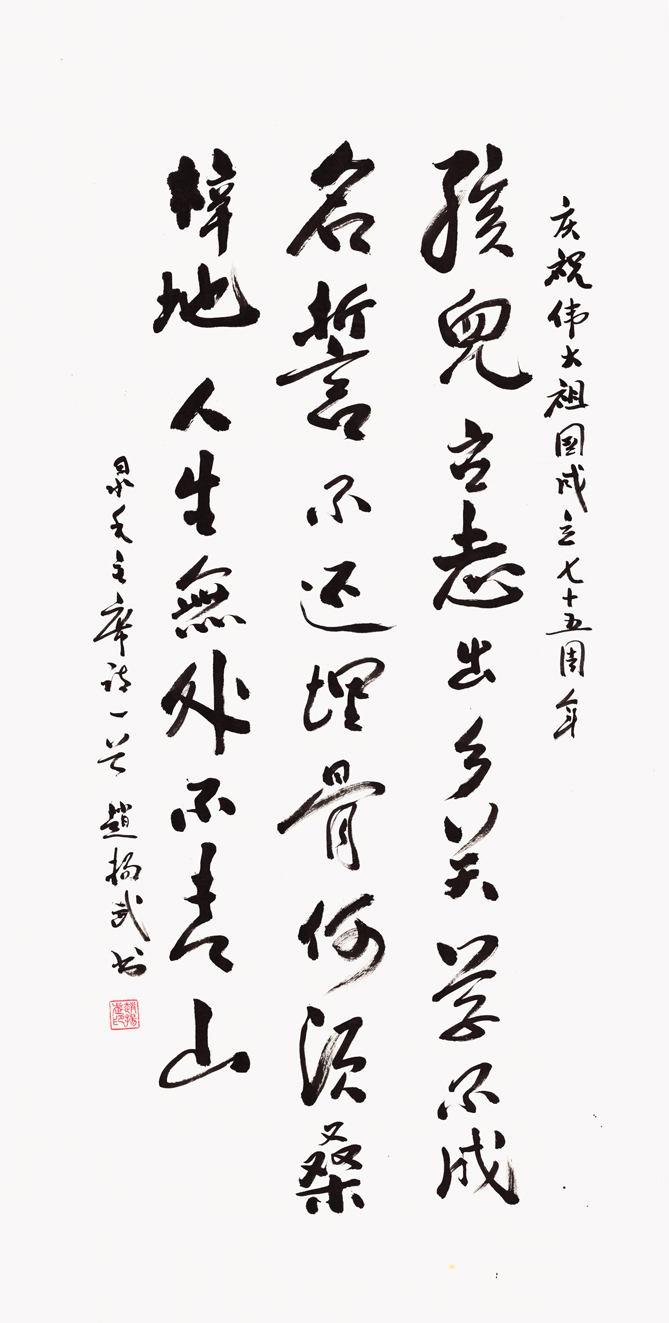 庆祝伟大祖国成立七十五周年
孩兒立志出乡关学不成
名誓不还埋骨何须桑
梓地人生無处不青山
录毛主席诗一首 趙揚武书
趙揚武印